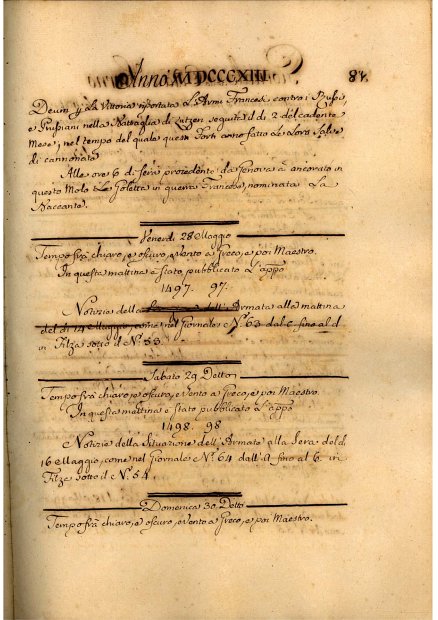 Anno MDCCCXIII. 87.
Deum p La Vittoria riportata L'Armi Francesi contro i Russi,
e Prussiani nella Battaglia di Lutzen seguita d di 2 del cadente
Mese, nel tempo del quale questi Forti anno fatto Le Loro Salve
di cannonate.
Alle ore 6 di sera procedente da Genova à ancorato in
questo Molo La Goletta in guerra Francese, nominata La
Baccante.
Venerdi 28 Maggio
Tempo frà chiaro, e oscuro, e vento a Greco, e poi Maestro.
In questa mattina e stato pubblicato L'appo
1497. 97.
Notizie della dell'Armata alla mattina
del di 14 Maggio, come nel Giornale N.o 63 dal c fino al d
in Filza sotto d N.o 53.
Sabato 29 Detto
Tempo frà chiaro, e oscuro, e vento a Greco, e poi Maestro.
In questa mattina e stato pubblicato L'appo
1498. 98
Notizie della Situazione dell'Armata alla Sera del d
16 Maggio, come nel Giornale N.o 64 dall' a fino al b in
Filza sotto d N.o 54
Domenica 30 Detto
Tempo frà chiaro, e oscuro, e vento a Greco, e poi Maestro.